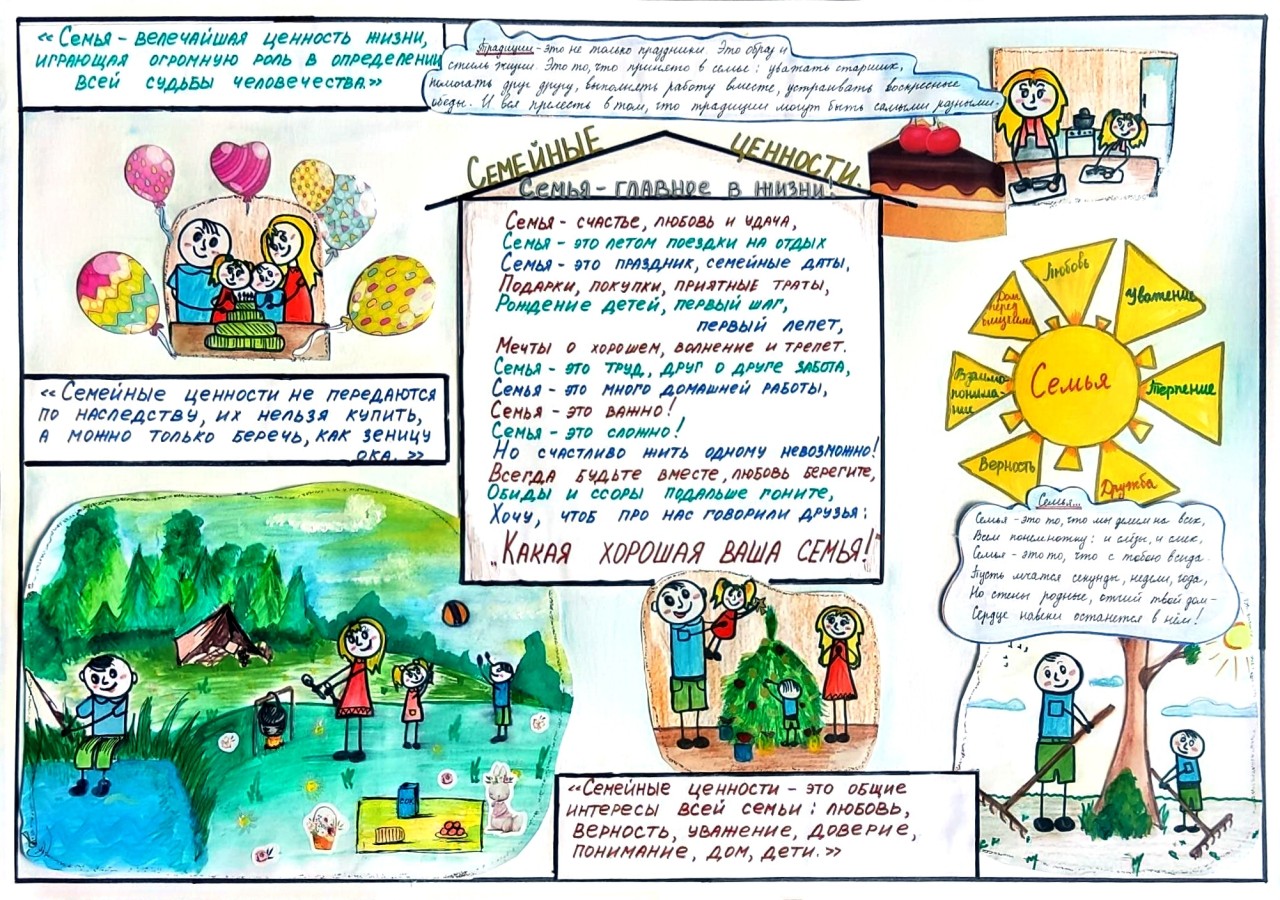 «Семья – велечайшая ценность жизни,
играющая огромную роль в определении
всей судьбы человечества.»
Традиции – это не только праздники. Это образ и
стиль жизни. Это то, что принято в семье: уважать старших,
помогать друг другу, выполнять работу вместе, устраивать воскресные
обеды. И вся прелесть в том, что традиции могут быть самыми разными.
Семейные ценности.
Семья – главное в жизни!
Семья – счастье, любовь и удача,
Семья – это летом поездки на отдых
Семья – это праздник, семейные даты,
Подарки, покупки, приятные траты,
Рождение детей, первый шаг,
первый лепет,
Мечты о хорошем, волнение и трепет.
Семья – это труд, друг о друге забота,
Семья – это много домашней работы,
Семья – это важно!
Семья – это сложно!
Но счастливо жить одному невозможно!
Всегда будьте вместе, любовь берегите,
Обиды и ссоры подальше гоните,
Хочу, чтоб про нас говорили друзья:
"Какая хорошая ваша семья!"
«Семейные ценности не передаются
по наследству, их нельзя купить,
а можно только беречь, как зеницу
ока.»
Любовь
Уважение
Терпение
Дружба
Верность
Взаимо-
понима-
ние
Долг
перед
Семья
Семья...
Семья – это то, что мы делим на всех,
Всем понемножку: и слёзы, и смех,
Семья – это то, что с тобою всегда.
Пусть мчатся секунды, недели, года,
Но стены родные, отчий твой дом –
Сердце навеки останется в нём!
сок
«Семейные ценности – это общие
интересы всей семьи: любовь,
верность, уважение, доверие,
понимание, дом, дети.»